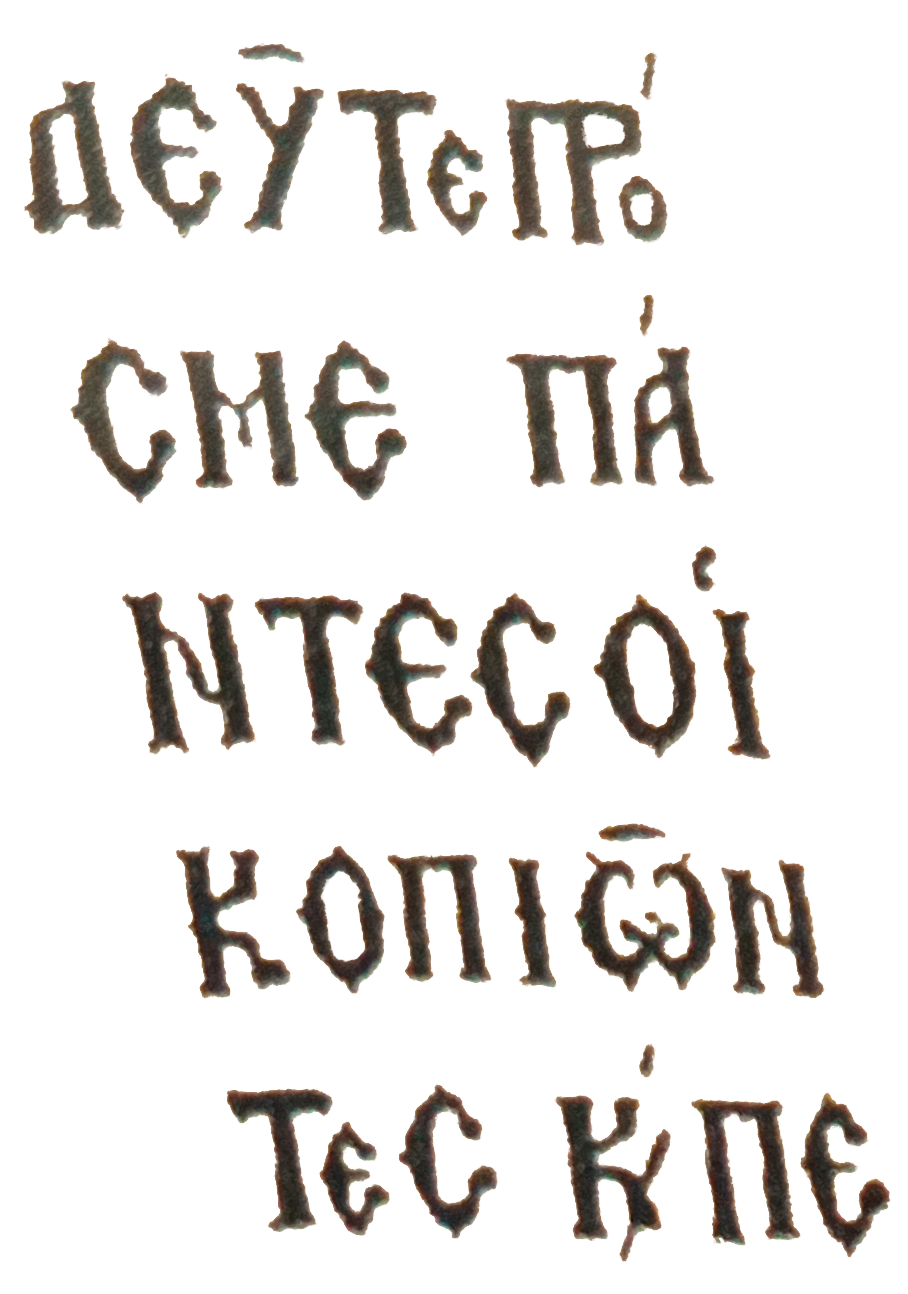 ΔΕΥ͂ΤΕ ΠΡΌ
Σ ΜΕ ΠΆ
ΝΤΕΣ ΟἹ
ΚΟΠΙΩ͂Ν
ΤΕΣ Ϗ́ ΠΕ